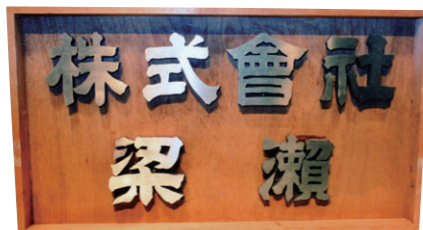 株式會社
梁瀨